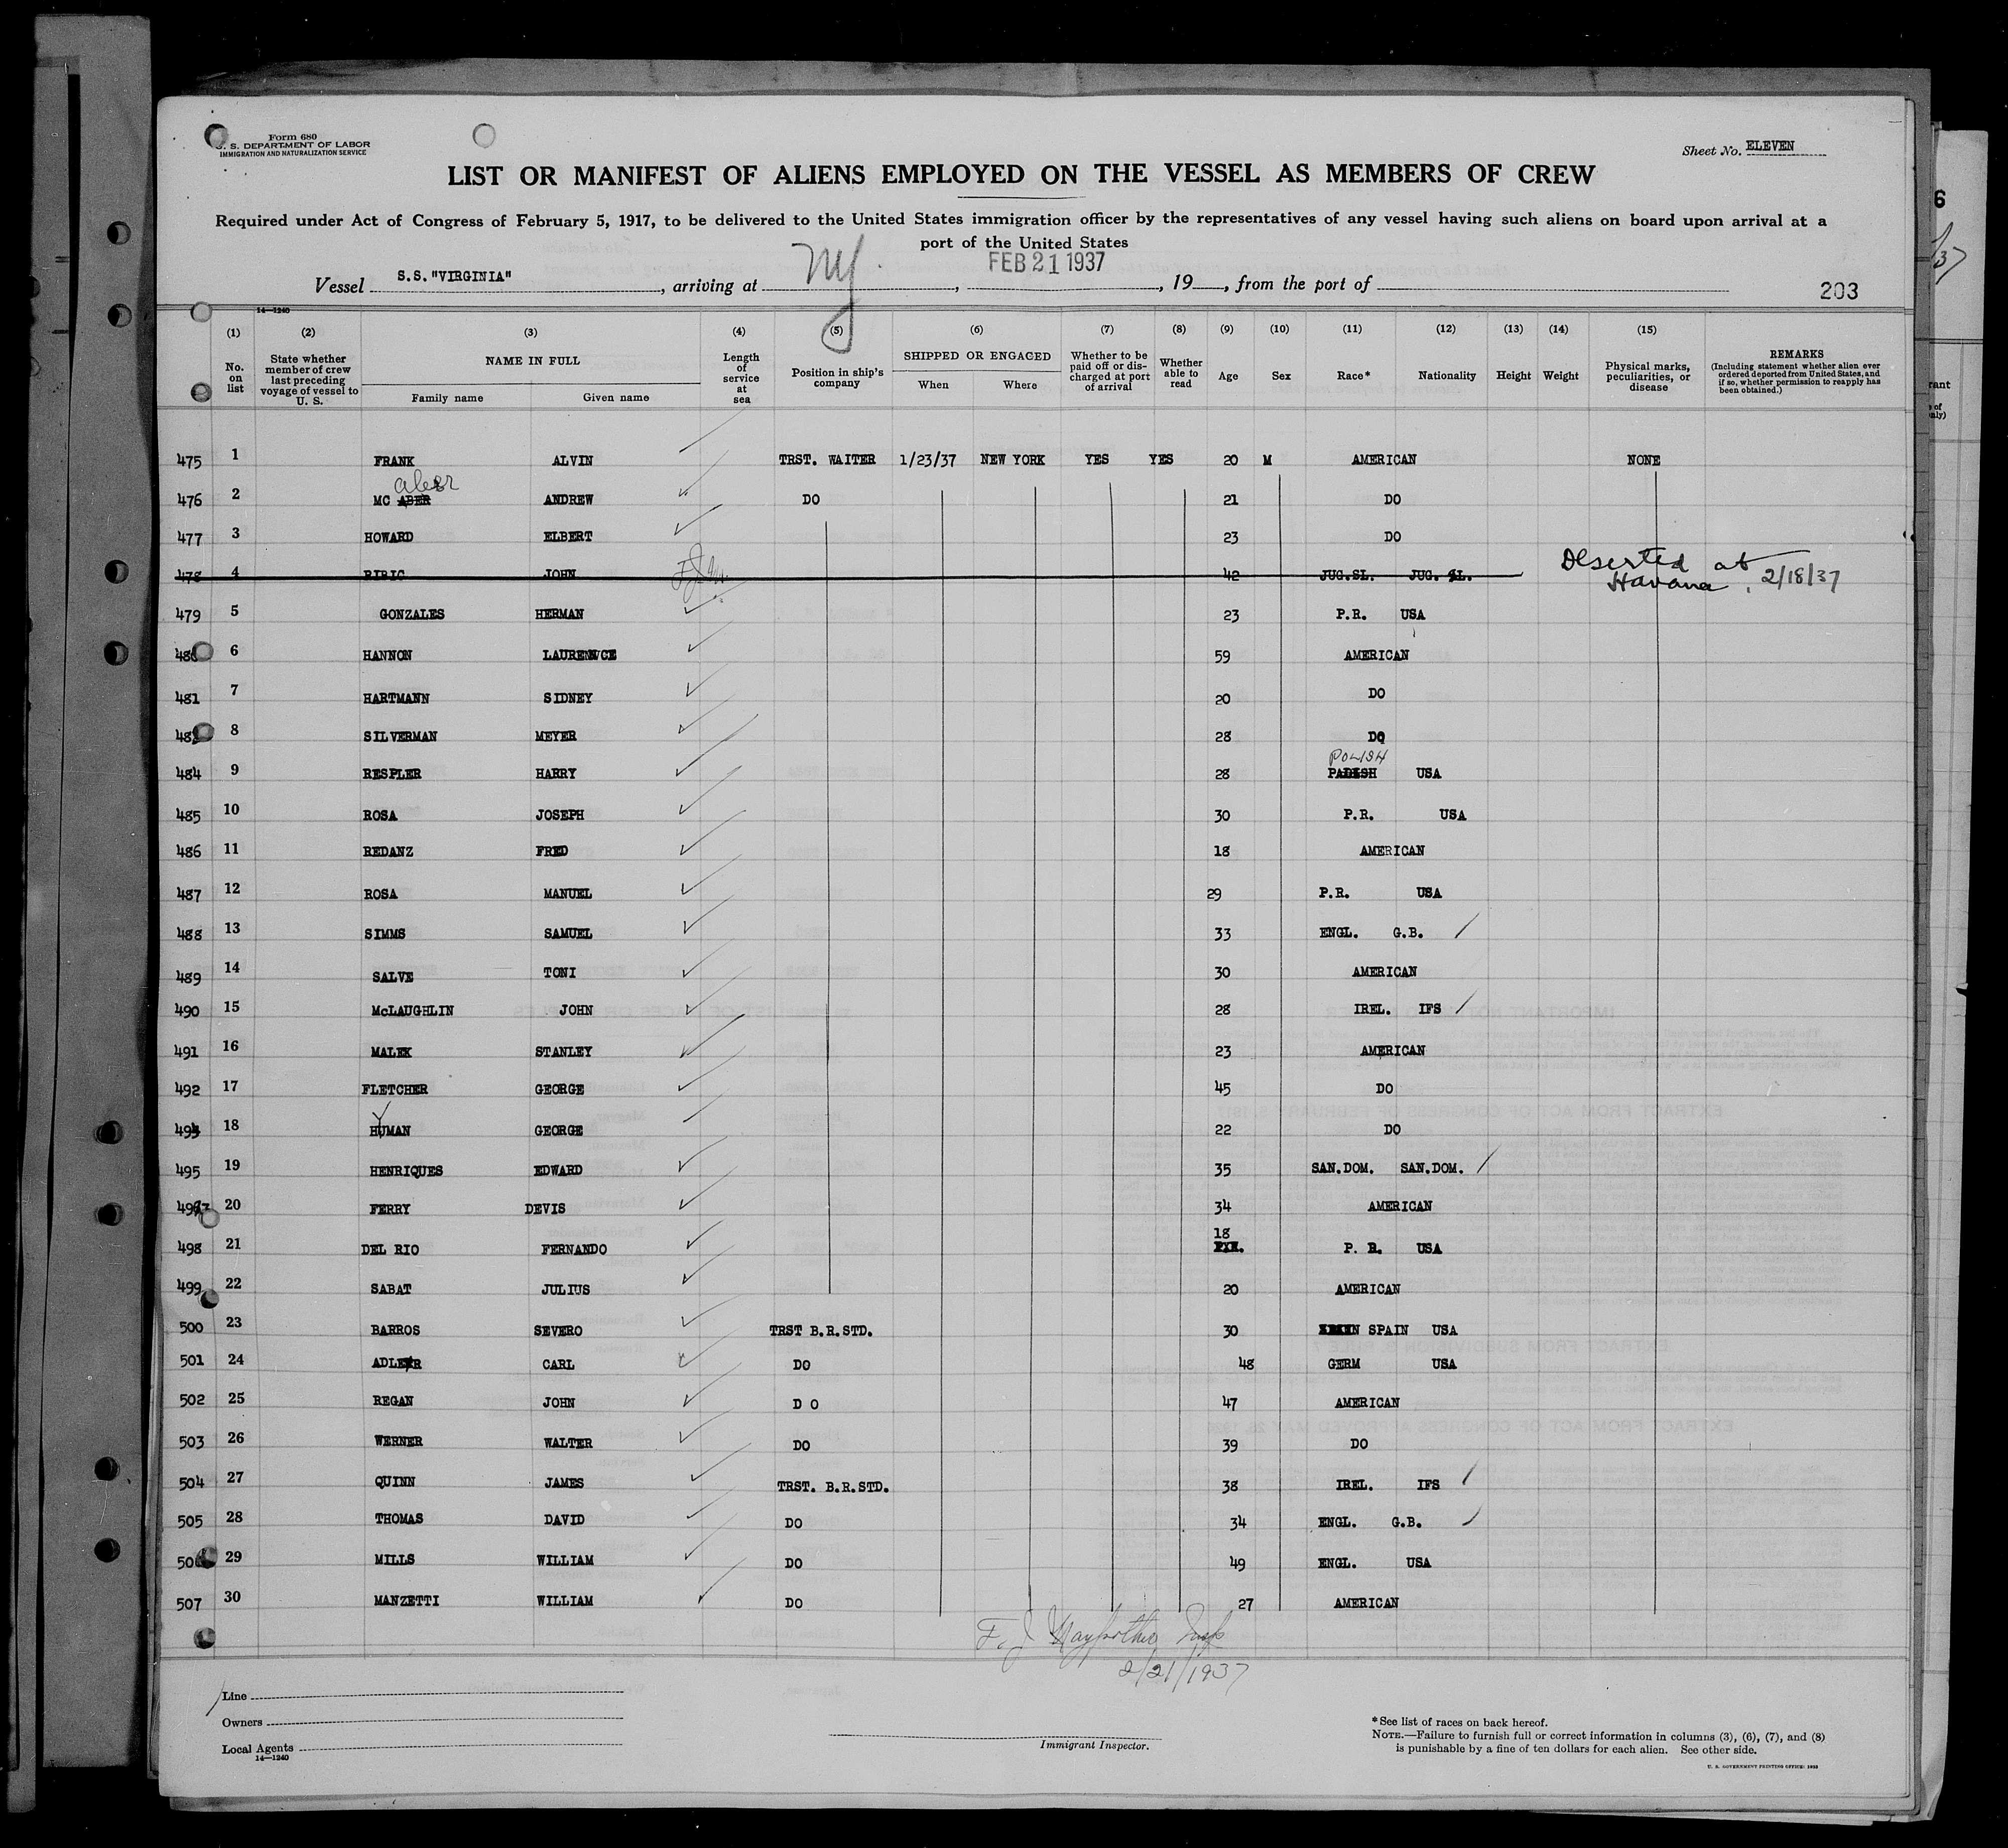 Form 680
U. S. DEPARTMENT OF LABOR
IMMIGRATION AND NATURALIZATION SERVICE
Sheet No. ELEVEN
LIST OR MANIFEST OF ALIENS EMPLOYED ON THE VESSEL AS MEMBERS OF CREW
Required under Act of Congress of February 5, 1917, to be delivered to the United States immigration officer by the representatives of any vessel having such aliens on board upon arrival at a
port of the United States
Vessel S.S."VIRGINIA", arriving at NY. , FEB 21 1937, 19 , from the port of
203
14—1240
(1) (2) (3) (4) (5) (6) (7) (8) (9) (10) (11) (12) (13) (14) (15)
No. on list State whether member of crew last preceding voyage of vessel to U. S. NAME IN FULL Family name Given name Length of service at sea Position in ship's company SHIPPED OR ENGAGED When Where Whether to be paid off or discharged at port of arrival Whether able to read Age Sex Race* Nationality Height Weight Physical marks, peculiarities, or disease REMARKS (Including statement whether alien ever ordered deported from United States, and if so, whether permission to reapply has been obtained.)
475 1 FRANK ALVIN TRST. WAITER 1/23/37 NEW YORK YES YES 20 M AMERICAN NONE
aber
476 2 MC ABER ANDREW DO 21 DO
477 3 HOWARD ELBERT 23 DO
478 4 RIBIC JOHN 42 JUG.SL. JUG. SL. Deserted at Havana, 2/18/37
479 5 GONZALES HERMAN 23 P.R. USA
480 6 HANNON LAURENCE 59 AMERICAN
481 7 HARTMANN SIDNEY 20 DO
8 SILVERMAN MEYER 28 DO
POLISH
484 9 RESPLER HARRY 28 USA
485 10 ROSA JOSEPH 30 P.R. USA
486 11 REDANZ FRED 18 AMERICAN
487 12 ROSA MANUEL 29 P.R. USA
488 13 SIMMS SAMUEL 33 ENGL. G.B.
489 14 SALVE TONI 30 AMERICAN
490 15 McLAUGHLIN JOHN 28 IREL. IFS
491 16 MALEK STANLEY 23 AMERICAN
492 17 FLETCHER GEORGE 45 DO
Y
18 HUMAN GEORGE 22 DO
495 19 HENRIQUES EDWARD 35 SAN.DOM. SAN.DOM.
20 FERRY DEVIS 34 AMERICAN
498 21 DEL RIO FERNANDO 18 P. R. USA
499 22 SABAT JULIUS 20 AMERICAN
500 23 BARROS SEVERO TRST B.R.STD. 30 SPAIN USA
501 24 ADLER CARL DO 48 GERM USA
502 25 REGAN JOHN D O 47 AMERICAN
503 26 WERNER WALTER DO 39 DO
504 27 QUINN JAMES TRST. B.R.STD. 38 IREL. IFS
505 28 THOMAS DAVID DO 34 ENGL. G.B.
29 MILLS WILLIAM DO 49 ENGL. USA
507 30 MANZETTI WILLIAM DO 27 AMERICAN
F. J.
2/21/1937
Line
Owners
Local Agents
14—1240
Immigrant Inspector.
*See list of races on back hereof.
NOTE.—Failure to furnish full or correct information in columns (3), (6), (7), and (8)
is punishable by a fine of ten dollars for each alien. See other side.
U. S. GOVERNMENT PRINTING OFFICE: 1935